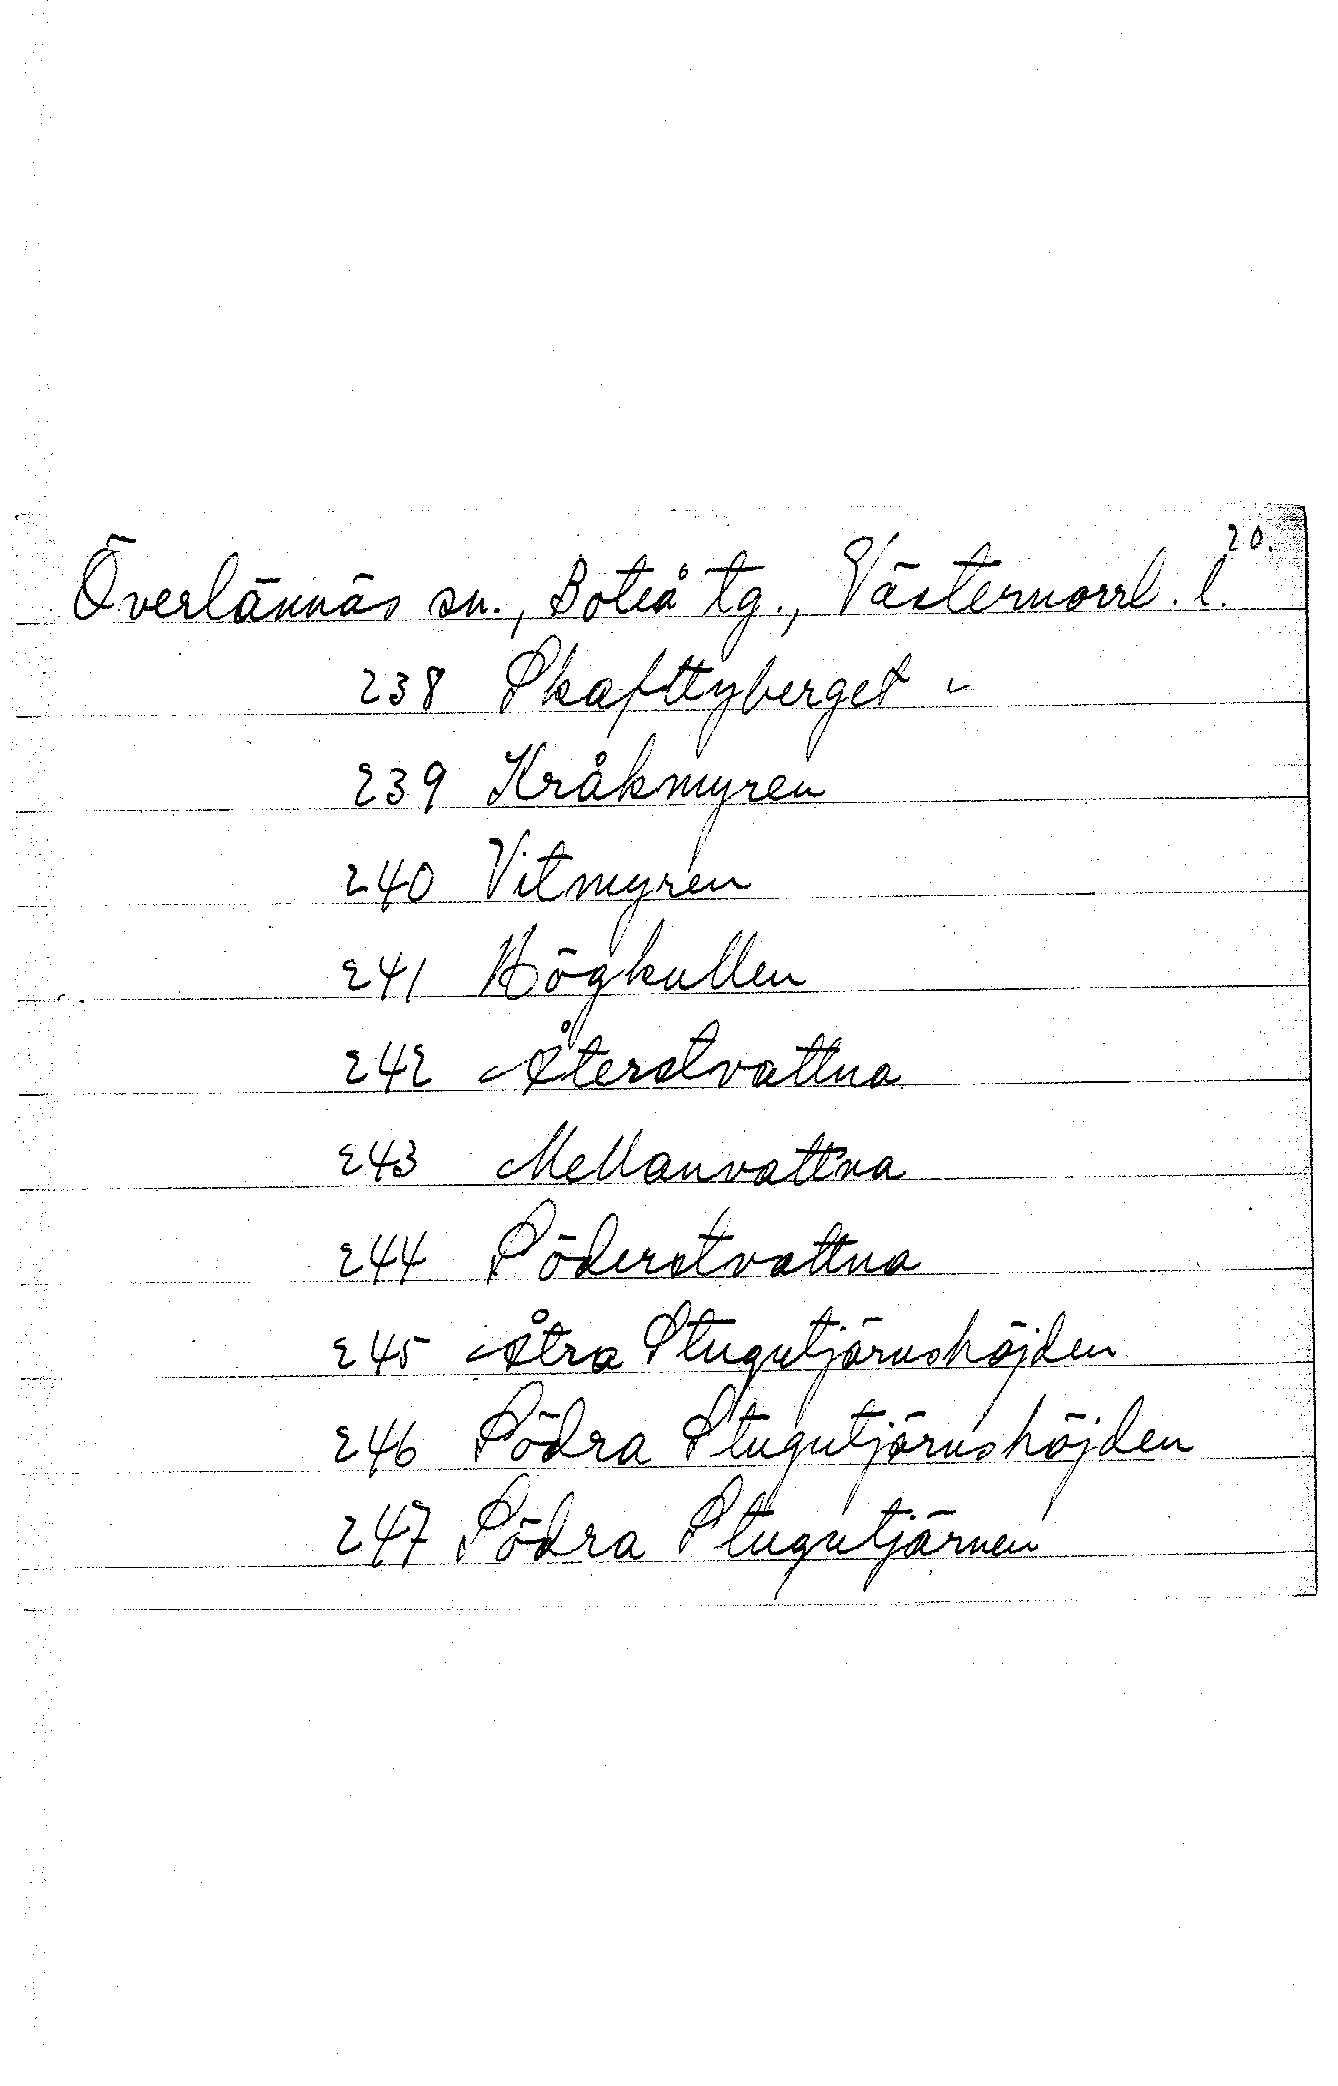 20.
Överlännäs sn., Boteå tg., Västernorrl. l.
238 Skafttyberget
239 Kråkmyren
240 Vitmyren
241 Högkullen
242 Återstvattna
243 Mellanvattna
244 Söderstvattna
245 Åtra Stugutjärnshöjden
246 Södra Stugutjärnshöjden
247 Södra Stugutjärnen